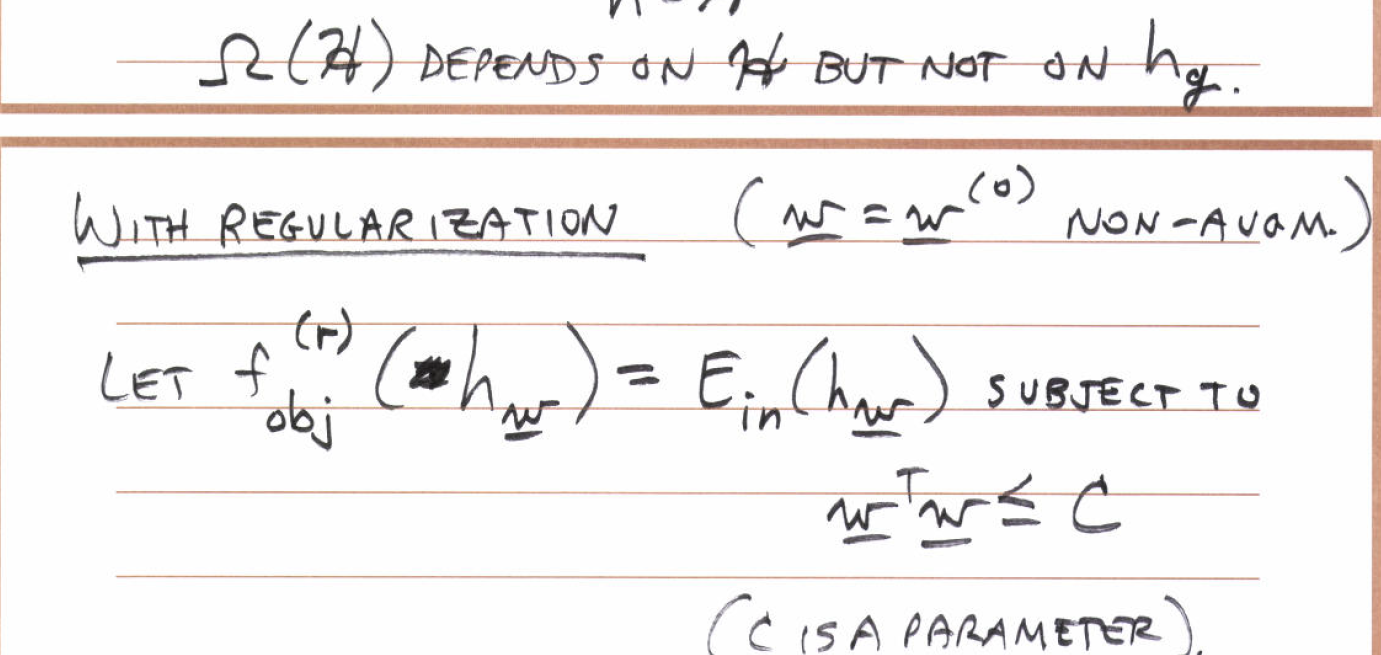 Ω(ℋ) DEPENDS ON ℋ BUT NOT ON h_g.
WITH REGULARIZATION (w = w^(0) NON-AUGM.)
LET f_obj^(r) (h_w) = E_in(h_w) SUBJECT TO
w^T w ≤ C
(C IS A PARAMETER).